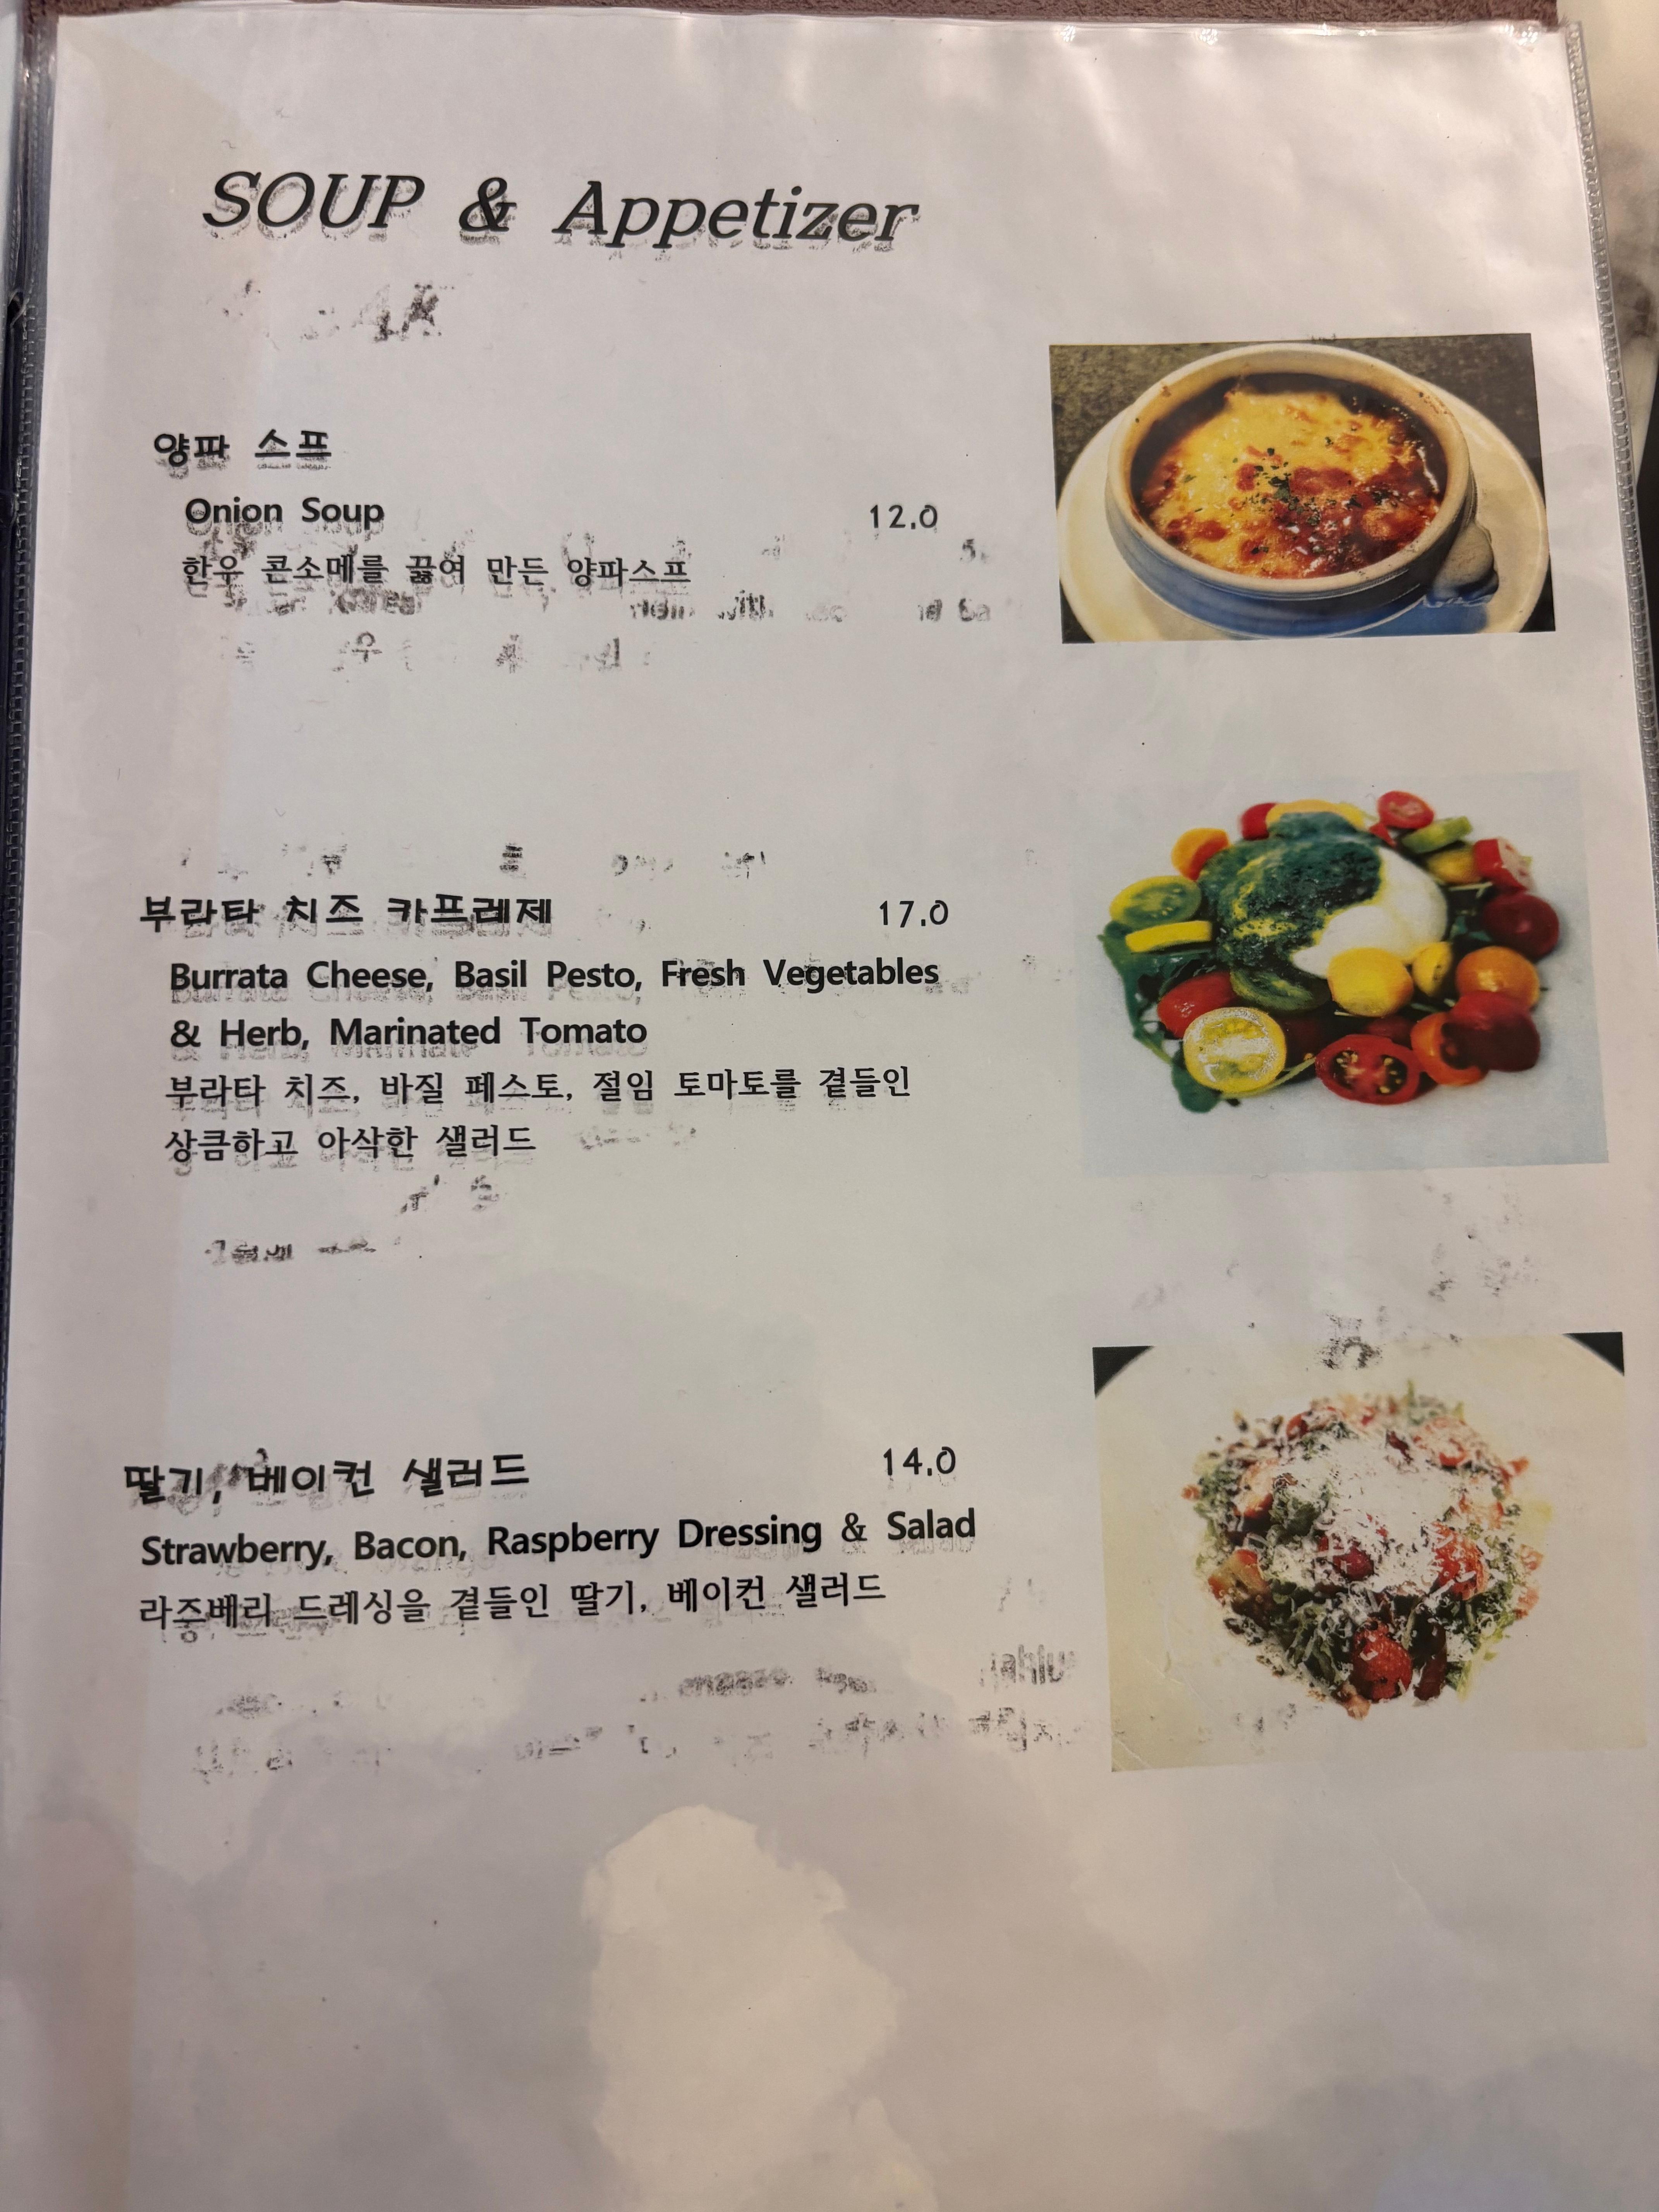 SOUP & Appetizer
양파 스프
Onion Soup 12.0
한우 콘소메를 끓여 만든 양파스프
부라타 치즈 카프레제 17.0
Burrata Cheese, Basil Pesto, Fresh Vegetables
& Herb, Marinated Tomato
부라타 치즈, 바질 페스토, 절임 토마토를 곁들인
상큼하고 아삭한 샐러드
딸기, 베이컨 샐러드 14.0
Strawberry, Bacon, Raspberry Dressing & Salad
라즈베리 드레싱을 곁들인 딸기, 베이컨 샐러드